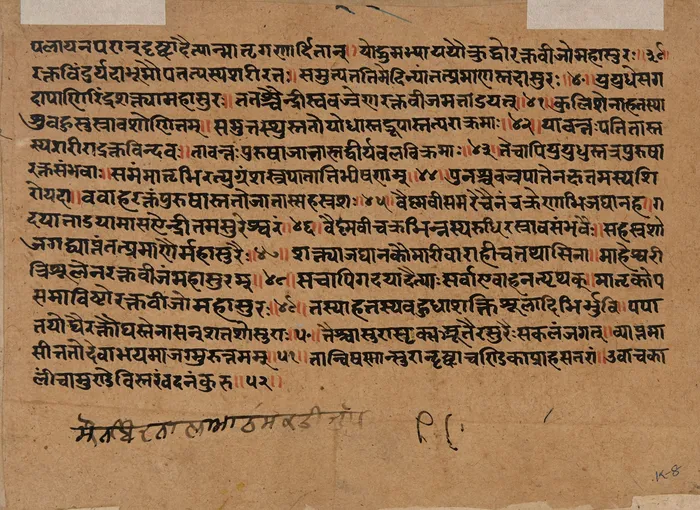 पलायनपरान्दृष्ट्वादैत्यान्मातृगणार्दितान्॥ योद्धुमभ्याययौक्रुद्धोरक्तबीजोमहासुरः॥३९॥
रक्तबिंदुर्यदाभूमौपतत्यस्यशरीरतः॥ समुत्पततिमेदिन्यांतत्प्रमाणस्तदासुरः॥४०॥ युयुधेसग
दापाणिरिंद्रशक्त्यामहासुरः॥ ततश्चैन्द्रीस्ववज्रेणरक्तबीजमताडयत्॥४१॥ कुलिशेनाहतस्या
शुबहुसुस्रावशोणितम्॥ समुत्तस्थुस्ततोयोधास्तद्रूपास्तत्पराक्रमाः॥४२॥ यावन्तःपतितास्त
स्यशरीराद्रक्तबिन्दवः॥ तावन्तःपुरुषाजातास्तद्वीर्यबलविक्रमाः॥४३॥ तेचापियुयुधुस्तत्रपुरुषा
रक्तसंभवाः॥ समंमातृभिरत्युग्रंशस्त्रपातातिभीषणम्॥४४॥ पुनश्चवज्रपातेनक्षतमस्यशि
रोयदा॥ ववाहरक्तंपुरुषास्ततोजाताःसहस्रशः॥४५॥ वैष्णवीसमरेचैनंचक्रेणाभिजघानह॥ ग
दयाताडयामासऐन्द्रीतमसुरेश्वरं॥४६॥ वैष्णवीचक्रभिन्नस्यरुधिरस्रावसंभवैः॥ सहस्रशो
जगद्व्याप्तंतत्प्रमाणैर्महासुरैः॥४७॥ शक्त्याजघानकौमारीवाराहीचतथासिना॥ माहेश्वरी
त्रिशूलेनरक्तबीजंमहासुरम्॥४८॥ सचापिगदयादैत्यःसर्वाएवाहनत्पृथक्॥ मातॄःकोप
समाविष्टोरक्तबीजोमहासुरः॥४९॥ तस्याहतस्यबहुधाशक्तिशूलादिभिर्भुवि॥ पपा
तयोवैरक्तौघस्तेनासन्शतशोसुराः॥५०॥ तैश्चासुरासृक्संभूतैरसुरैःसकलंजगत्॥ व्याप्तमा
सीत्ततोदेवाभयमाजग्मुरुत्तमम्॥५१॥ तान्विषण्णान्सुरान्दृष्ट्वाचण्डिकाप्राहसत्वरा॥ उवाचका
लींचामुण्डेविस्तरंवदनंकुरु॥५२॥
K-8